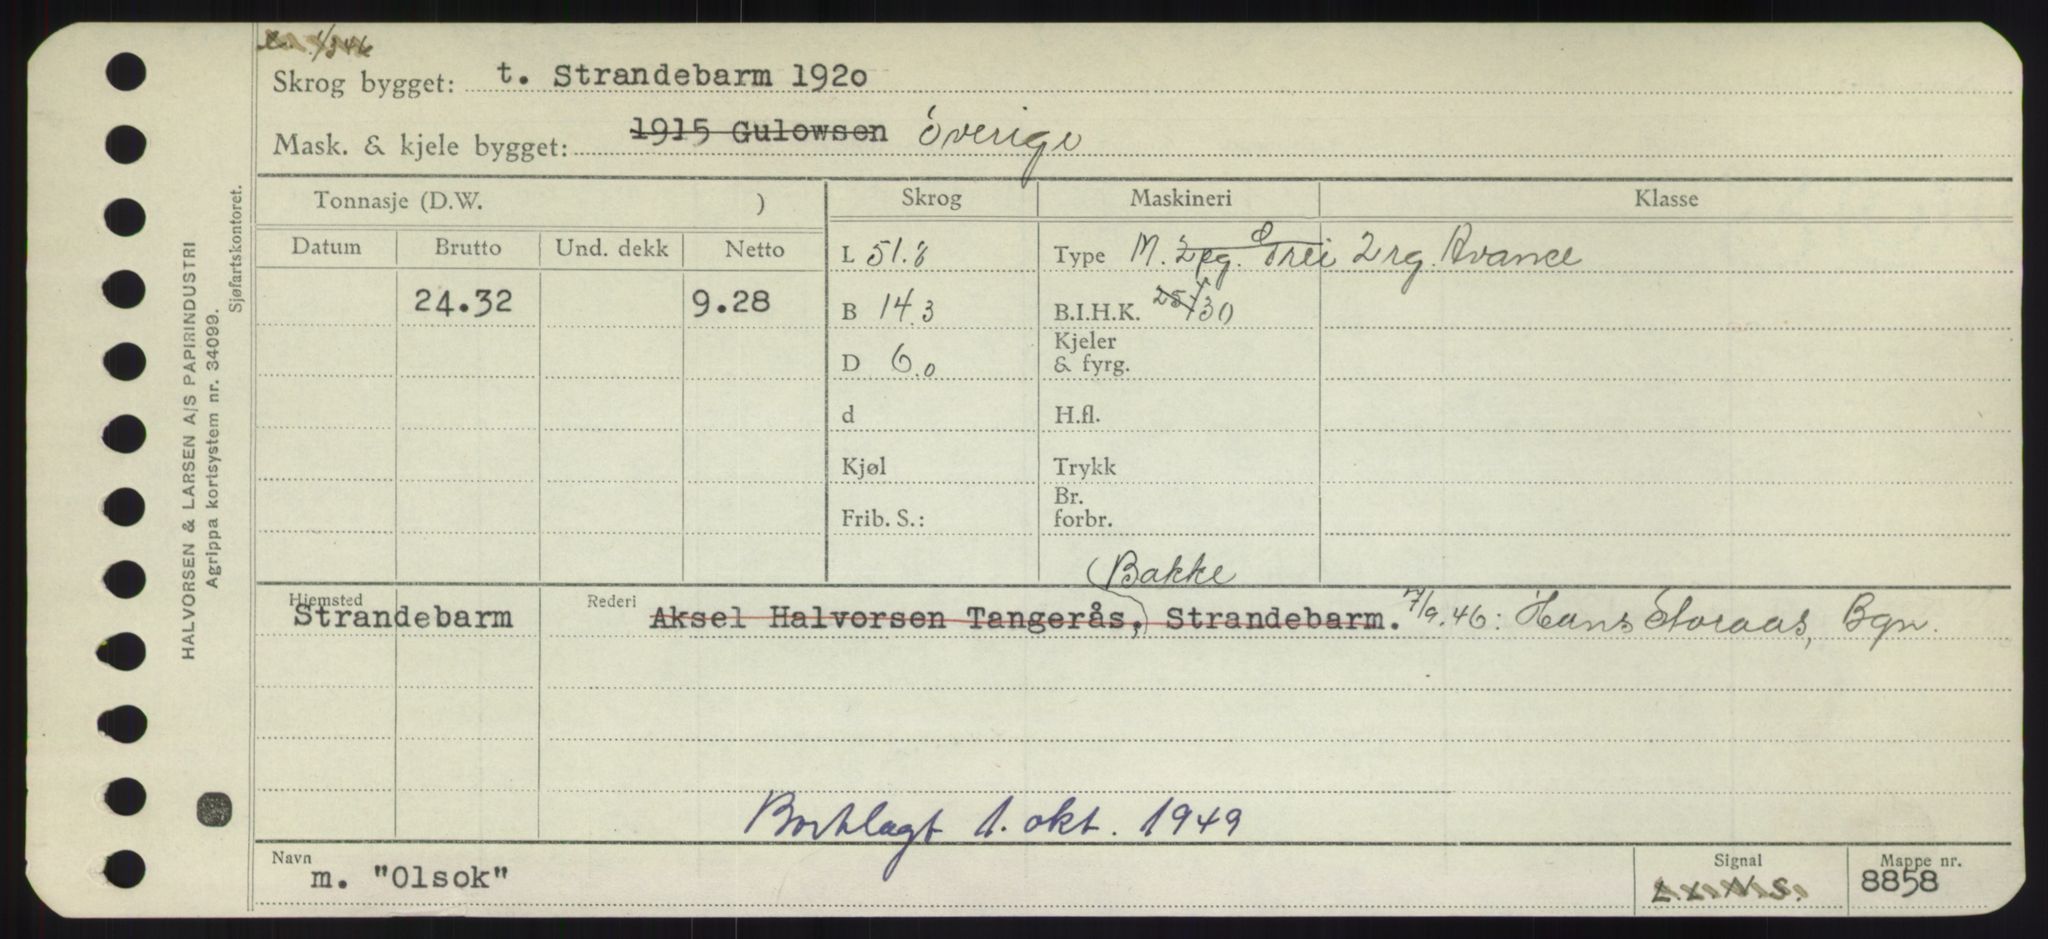 Skrog bygget: t. Strandebarm 1920
Mask. & kjele bygget: 1915 Gulowsen Sverige
Tonnasje (D.W. ) Skrog Maskineri Klasse
Datum Brutto Und. dekk Netto L 51.8 Type M. 2 rg. Avance
24.32 9.28 B 14.3 B.I.H.K. 25 30
D 6.0 Kjeler
& fyrg.
d H.fl.
Kjøl Trykk
Frib. S.: Br.
forbr.
(Bakke)
Hjemsted Strandebarm Rederi Aksel Halvorsen Tangerås, Strandebarm. 7/9.46: Hans Storaas, Bgn.
Bortlagt 1. okt. 1949
Navn Signal Mappe nr.
m. "Olsok" 8858
HALVORSEN & LARSEN A/S PAPIRINDUSTRI
Agrippa kortsystem nr. 34099.
Sjøfartskontoret.